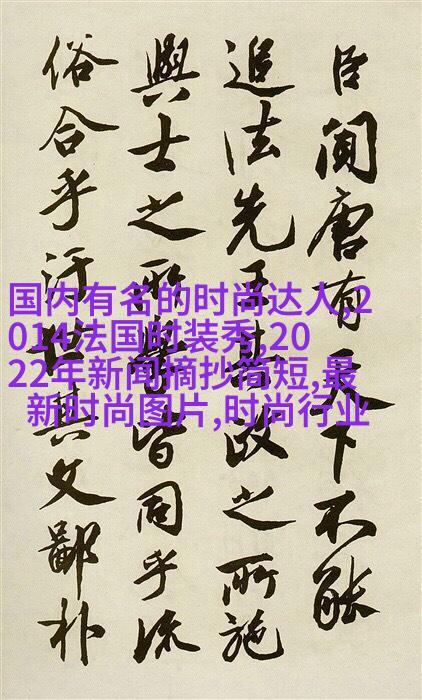 臣聞唐有天下不能
追法先王政之所施
與士之所皆同乎流
俗合乎汙世其文鄙朴
国内有名的时尚达人,2
014法国时装秀,20
22年新闻摘抄简短,最
新时尚图片,时尚行业